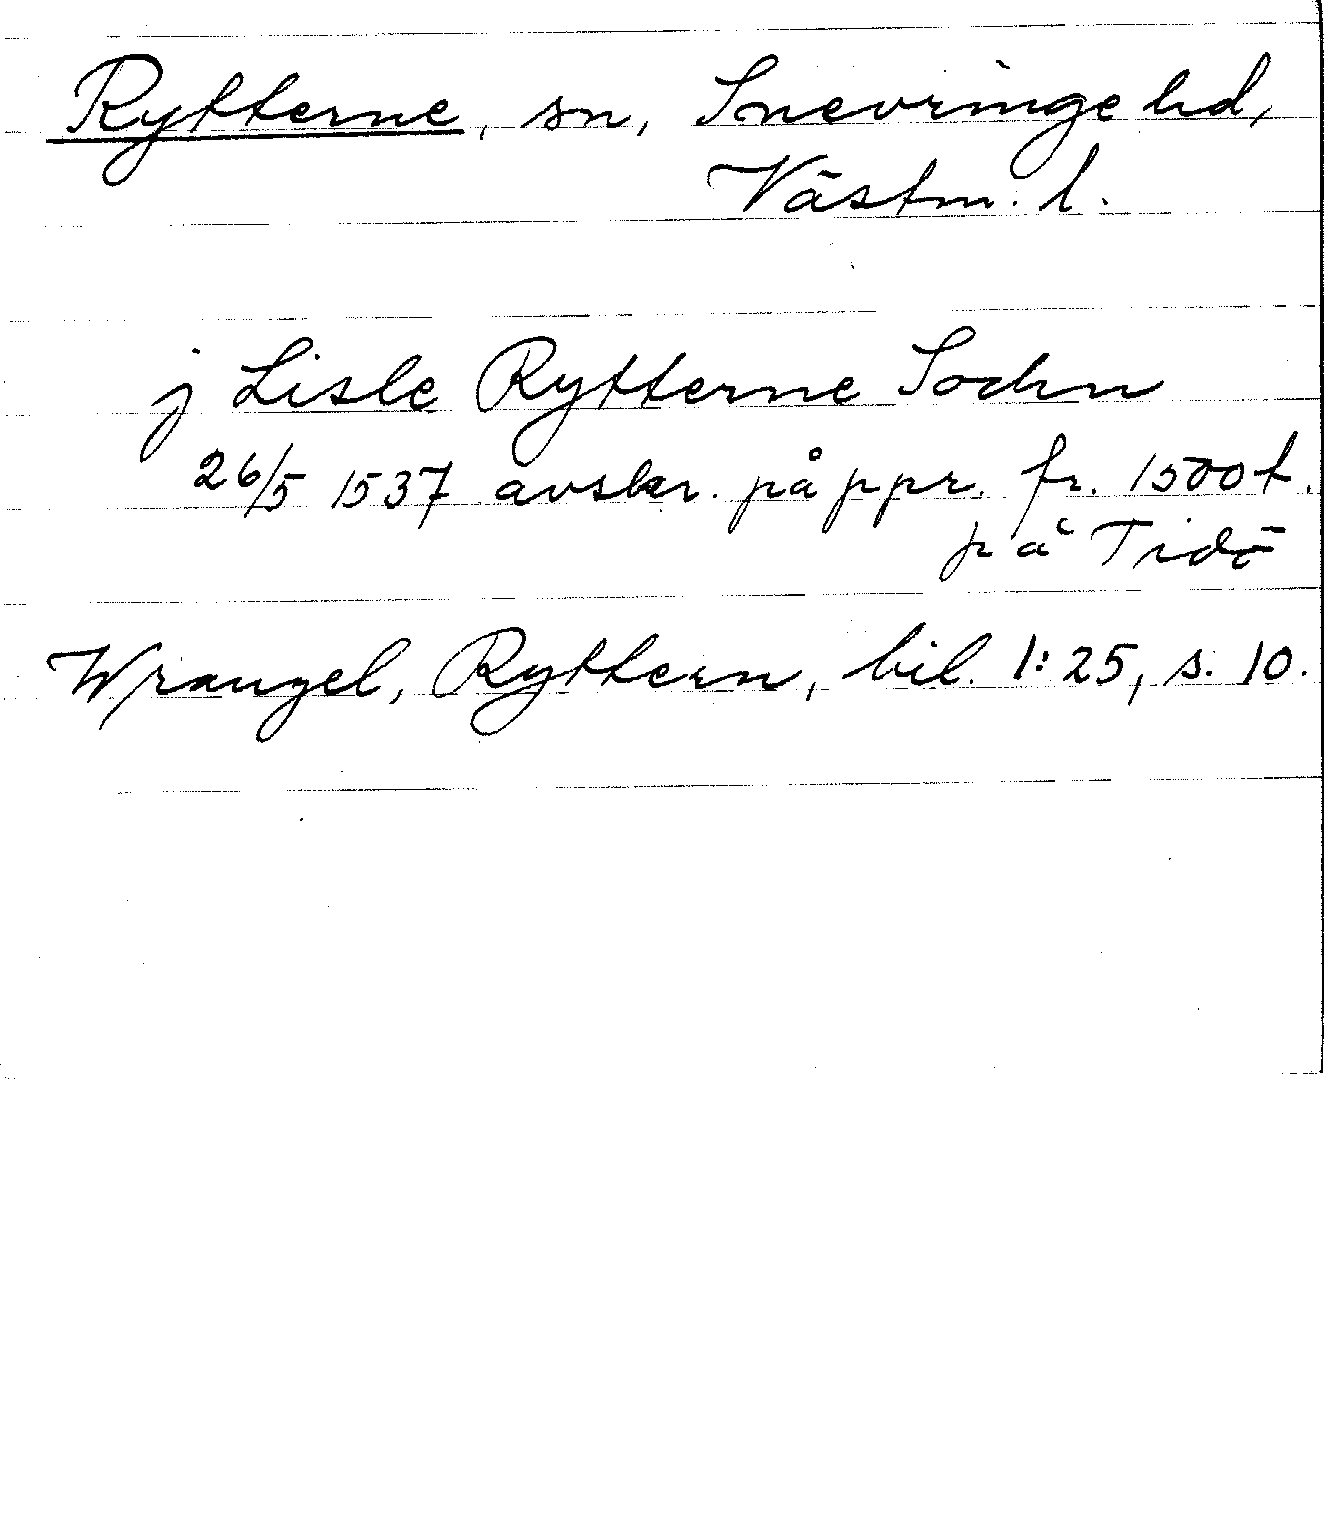 Rytterne, sn, Snevringe hd,
Västm. l.
j Lisle Rytterne Sochn
26/5 1537 avskr. på ppr. fr. 1500t.
på Tidö
Wrangel, Ryttern, bil. 1:25, s. 10.